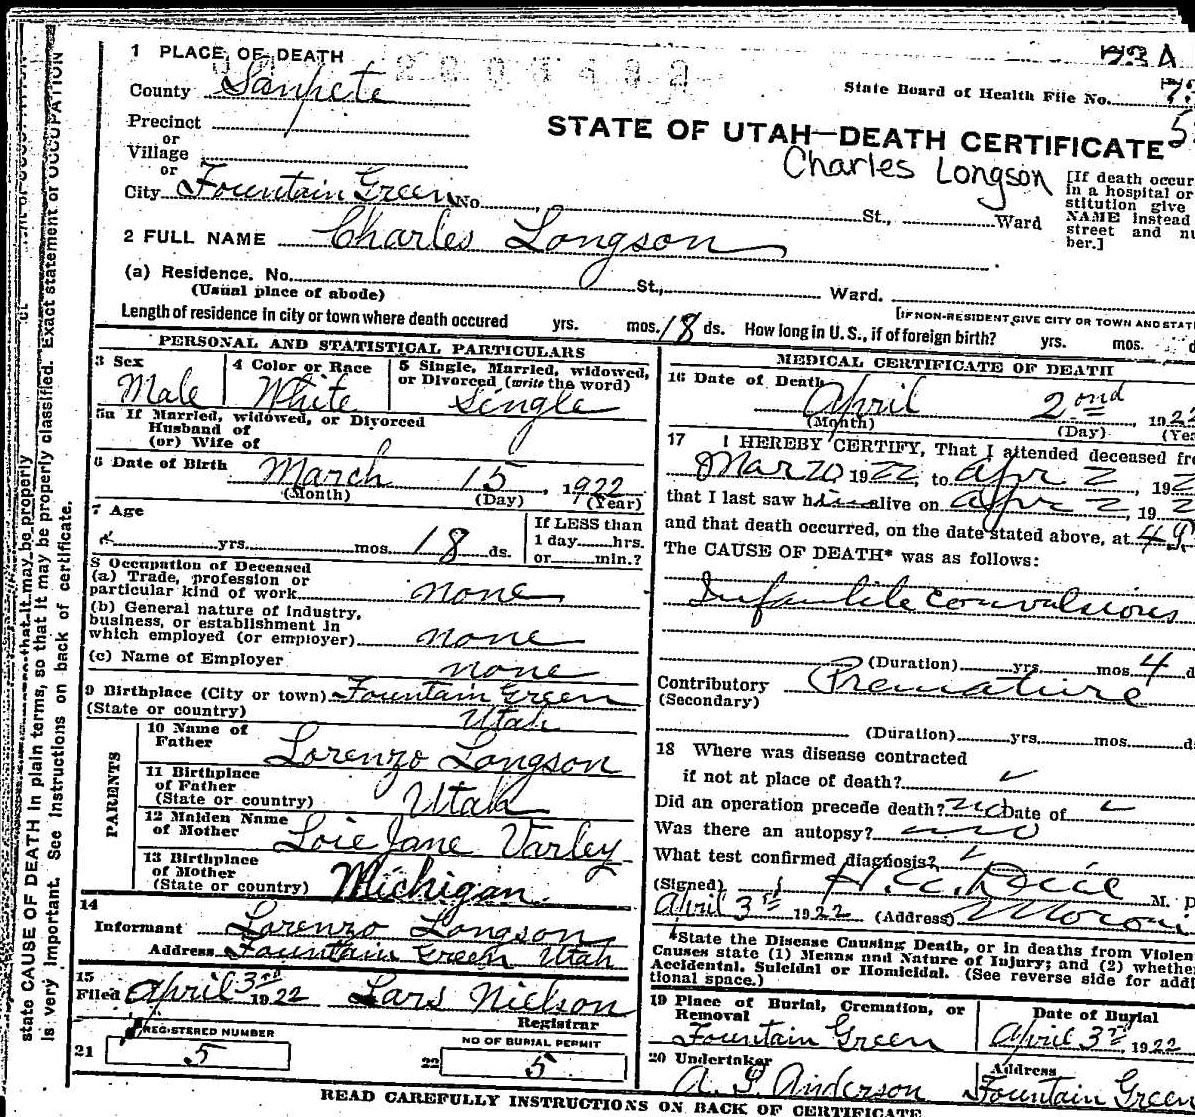 1 PLACE OF DEATH
73 A
County Sanpete
State Board of Health File No.
Precinct
or
Village
or
STATE OF UTAH—DEATH CERTIFICATE
Charles Longson
City Fountain Green No. St., Ward
[If death occur
in a hospital or
stitution give
NAME instead
street and nu
ber.]
2 FULL NAME Charles Longson
(a) Residence. No. St., Ward.
(Usual place of abode)
[IF NON-RESIDENT GIVE CITY OR TOWN AND STAT
Length of residence in city or town where death occured yrs. mos. 18 ds. How long in U.S., if of foreign birth? yrs. mos. d
PERSONAL AND STATISTICAL PARTICULARS
3 Sex
Male
4 Color or Race
White
5 Single, Married, widowed,
or Divorced (write the word)
Single
5a If Married, widowed, or Divorced
Husband of
(or) Wife of
6 Date of Birth March 15, 1922
(Month) (Day) (Year)
7 Age
yrs. mos. 18 ds.
If LESS than
1 day......hrs.
or......min.?
8 Occupation of Deceased
(a) Trade, profession or
particular kind of work none
(b) General nature of industry,
business, or establishment in
which employed (or employer) none
(c) Name of Employer none
9 Birthplace (City or town) Fountain Green
(State or country) Utah
PARENTS
10 Name of
Father Lorenzo Longson
11 Birthplace
of Father
(State or country) Utah
12 Maiden Name
of Mother Loie Jane Varley
13 Birthplace
of Mother
(State or country) Michigan
14
Informant Lorenzo Longson
Address Fountain Green Utah
15
Filed April 3rd 1922 Lars Nielson
Registrar
REGISTERED NUMBER
21 5
NO OF BURIAL PERMIT
22 5
MEDICAL CERTIFICATE OF DEATH
16 Date of Death
April 2nd, 192
(Month) (Day) (Yea
17 I HEREBY CERTIFY, That I attended deceased fro
Mar 20 1922, to Apr 2, 192
that I last saw him alive on Apr 2, 19
and that death occurred, on the date stated above, at 4
The CAUSE OF DEATH* was as follows:
Infantile convulsions
(Duration) yrs. mos. 4 d
Contributory Premature
(Secondary)
(Duration) yrs. mos. ds
18 Where was disease contracted
if not at place of death?
Did an operation precede death? no Date of
Was there an autopsy? no
What test confirmed diagnosis?
(Signed) M. D
April 3rd 1922 (Address) Moroni
*State the Disease Causing Death, or in deaths from Violen
Causes state (1) Means and Nature of Injury; and (2) whethe
Accidental, Suicidal or Homicidal. (See reverse side for addi
tional space.)
19 Place of Burial, Cremation, or
Removal
Fountain Green
Date of Burial
April 3rd, 1922
20 Undertaker
A. P. Anderson
Address
Fountain Green
READ CAREFULLY INSTRUCTIONS ON BACK OF CERTIFICATE
state CAUSE OF DEATH in plain terms, so that it may be properly classified. Exact statement of OCCUPATION
is very important. See instructions on back of certificate.